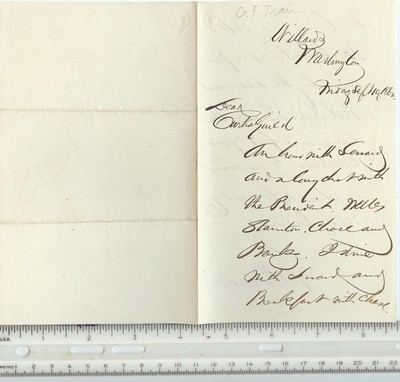 G. F. Train
Willards
Washington
Friday Sept 19, 1862
Dear
Curtis Guild
An hour with Seward
and a long chat with
the President. Welles
Stanton. Chase and
Banks. I dine
with Seward and
Breakfast with Chase.